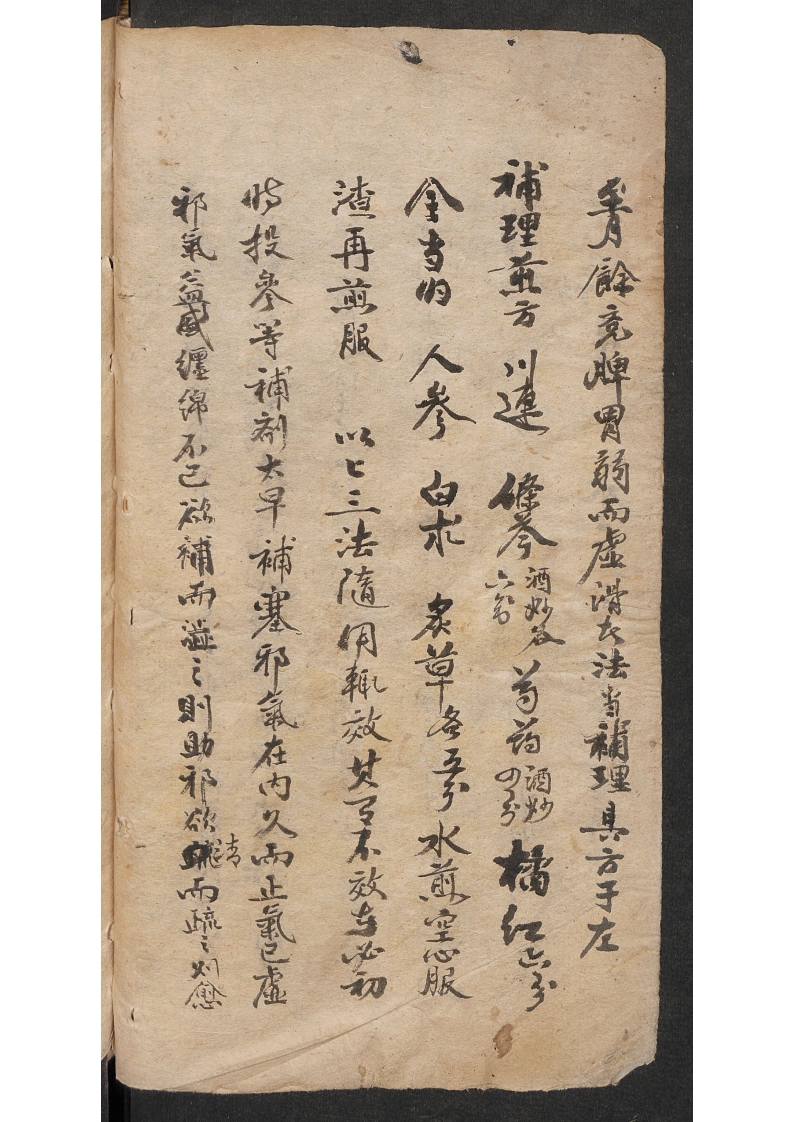 月餘竟脾胃弱而虛滑者法當補理具方于左
補理煎方 川連 條芩酒炒各六分 芍葯酒炒四分 橘红六分
全当归 人參 白朮 炙草各五分 水煎空心服
渣再煎服 以上三法隨用輒效其有不效者必初
時投參等補剤太早補塞邪氣在内久而正氣已虛
邪氣益盛纏綿不已欲補而澁之則助邪欲清而疏之则愈